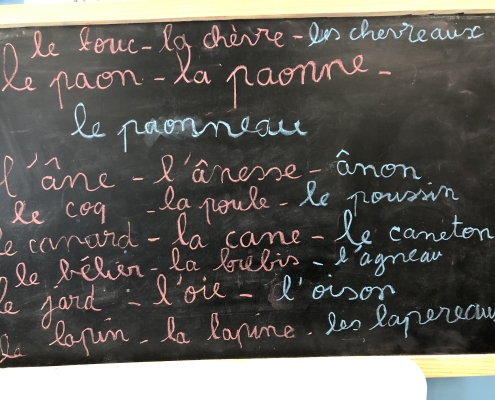 le bouc - la chèvre - les chevreaux
le paon - la paonne -
le paonneau
l'âne - l'ânesse - ânon
le coq - la poule - le poussin
le canard - la cane - le caneton
le bélier - la brebis - l'agneau
le jard - l'oie - l'oison
le lapin - la lapine - les lapereaux